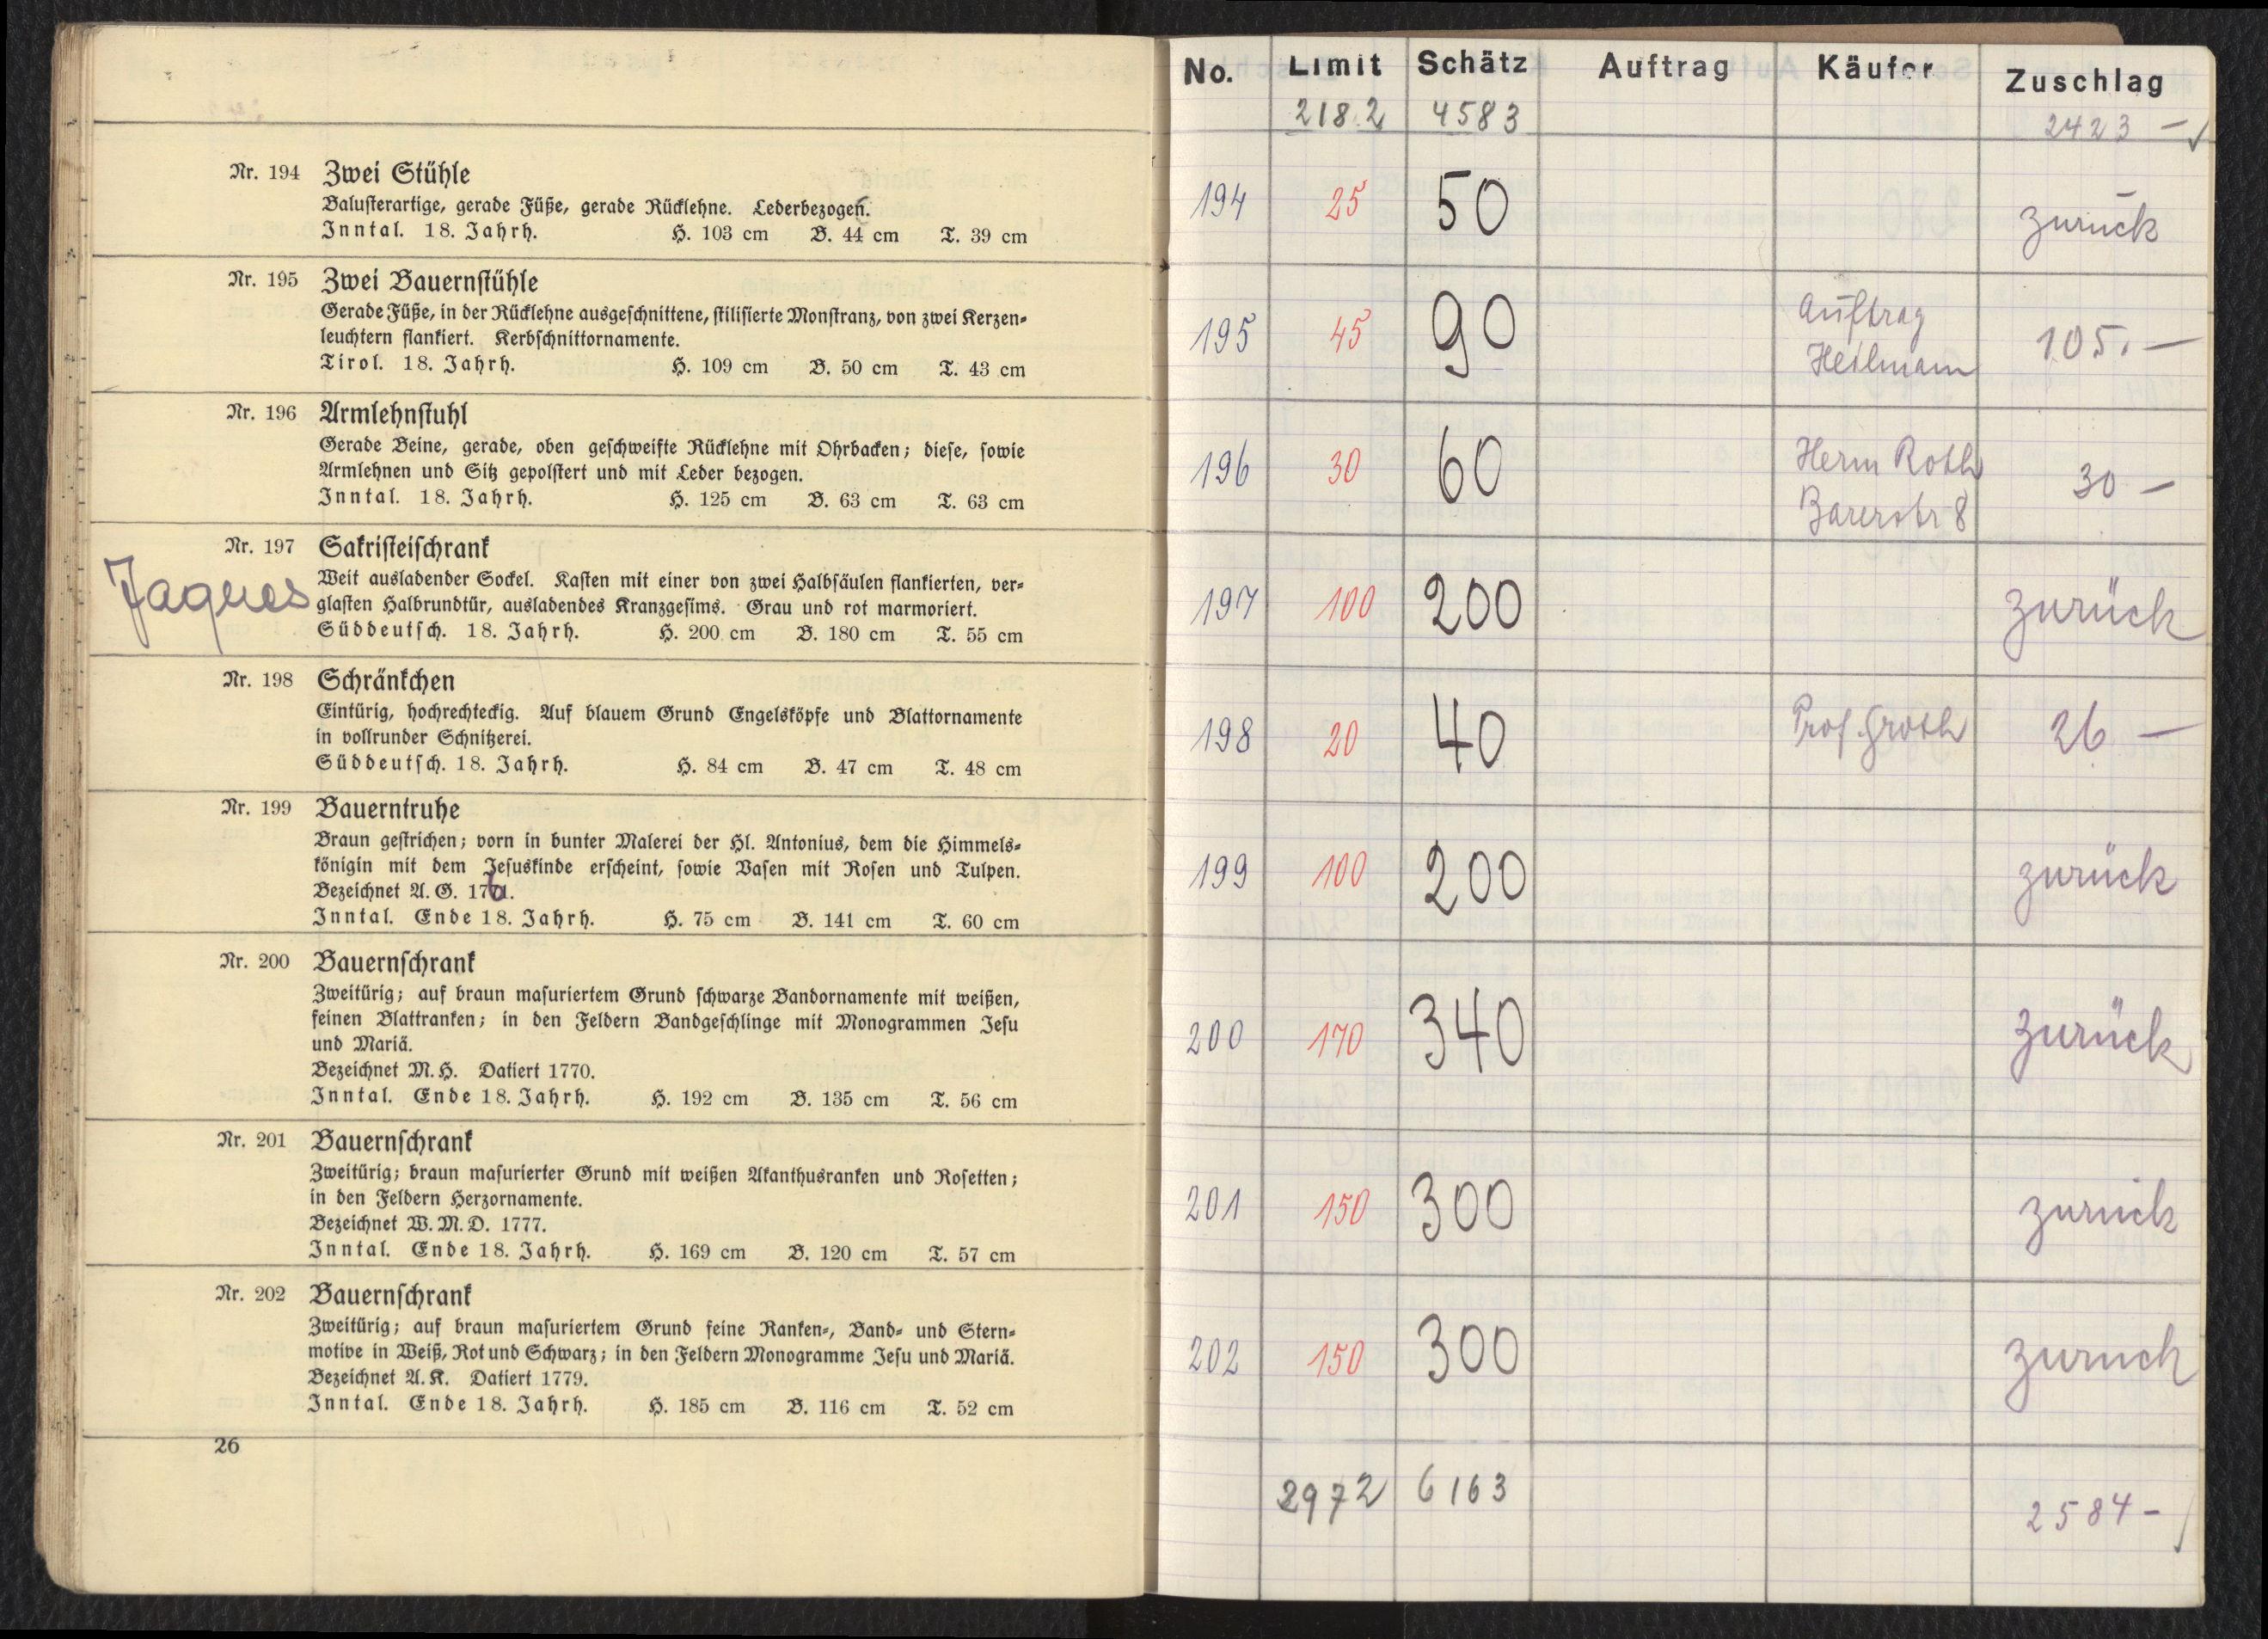 Nr. 194 Zwei Stühle
Balusterartige, gerade Füße, gerade Rücklehne. Lederbezogen.
Inntal. 18. Jahrh. H. 103 cm B. 44 cm T. 39 cm
Nr. 195 Zwei Bauernstühle
Gerade Füße, in der Rücklehne ausgeschnittene, stilisierte Monstranz, von zwei Kerzen-
leuchtern flankiert. Kerbschnittornamente.
Tirol. 18. Jahrh. H. 109 cm B. 50 cm T. 43 cm
Nr. 196 Armlehnstuhl
Gerade Beine, gerade, oben geschweifte Rücklehne mit Ohrbacken; diese, sowie
Armlehnen und Sitz gepolstert und mit Leder bezogen.
Inntal. 18. Jahrh. H. 125 cm B. 63 cm T. 63 cm
Nr. 197 Sakristeischrank
Jaques
Weit ausladender Sockel. Kasten mit einer von zwei Halbsäulen flankierten, ver-
glasten Halbrundtür, ausladendes Kranzgesims. Grau und rot marmoriert.
Süddeutsch. 18. Jahrh. H. 200 cm B. 180 cm T. 55 cm
Nr. 198 Schränkchen
Eintürig, hochrechteckig. Auf blauem Grund Engelsköpfe und Blattornamente
in vollrunder Schnitzerei.
Süddeutsch. 18. Jahrh. H. 84 cm B. 47 cm T. 48 cm
Nr. 199 Bauerntruhe
Braun gestrichen; vorn in bunter Malerei der Hl. Antonius, dem die Himmels-
königin mit dem Jesuskinde erscheint, sowie Vasen mit Rosen und Tulpen.
Bezeichnet A. G.
Inntal. Ende 18. Jahrh. H. 75 cm B. 141 cm T. 60 cm
Nr. 200 Bauernschrank
Zweitürig; auf braun masuriertem Grund schwarze Bandornamente mit weißen,
feinen Blattranken; in den Feldern Bandgeschlinge mit Monogrammen Jesu
und Mariä.
Bezeichnet M. H. Datiert 1770.
Inntal. Ende 18. Jahrh. H. 192 cm B. 135 cm T. 56 cm
Nr. 201 Bauernschrank
Zweitürig; braun masurierter Grund mit weißen Akanthusranken und Rosetten;
in den Feldern Herzornamente.
Bezeichnet W. M. D. 1777.
Inntal. Ende 18. Jahrh. H. 169 cm B. 120 cm T. 57 cm
Nr. 202 Bauernschrank
Zweitürig; auf braun masuriertem Grund feine Ranken-, Band- und Stern-
motive in Weiß, Rot und Schwarz; in den Feldern Monogramme Jesu und Mariä.
Bezeichnet A. K. Datiert 1779.
Inntal. Ende 18. Jahrh. H. 185 cm B. 116 cm T. 52 cm
26
No. Limit Schätz Auftrag Käufer Zuschlag
2182 4583 2423 -
194 25 50 zurück
195 45 90 Auftrag Heilmann 105.-
196 30 60 Herrn Roth 30 -
Barerstr 8
197 100 200 zurück
198 20 40 Prof. Groth 26 -
199 100 200 zurück
200 170 340 zurück
201 150 300 zurück
202 150 300 zurück
2972 6163 2584 -